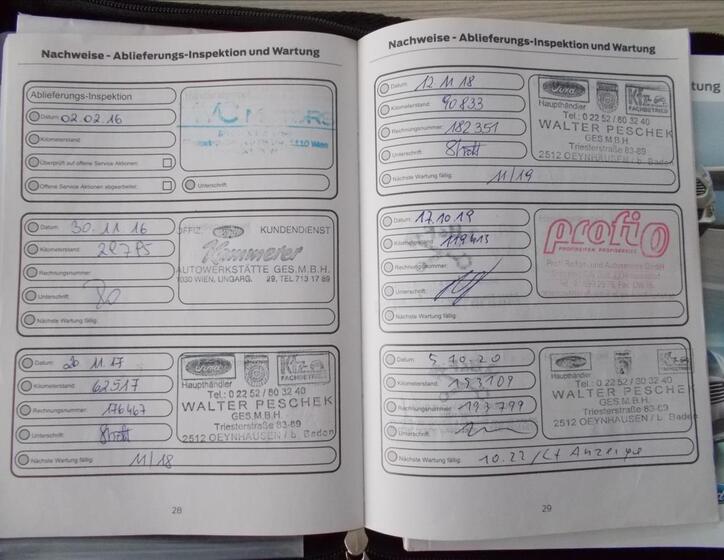 Nachweise - Ablieferungs-Inspektion und Wartung
Ablieferungs-Inspektion
Datum: 02.02.16
Kilometerstand:
Überprüft auf offene Service Aktionen:
Offene Service Aktionen abgearbeitet:
Unterschrift:
1110 Wien
Datum: 30.11.16
Kilometerstand: 28785
Rechnungsnummer:
Unterschrift:
Nächste Wartung fällig:
OFFIZ. Ford KUNDENDIENST
Kammeter
AUTOWERKSTÄTTE GES.M.B.H.
1030 WIEN, UNGARG. 29, TEL 713 17 89
Datum: 20.11.17
Kilometerstand: 62517
Rechnungsnummer: 176467
Unterschrift:
Nächste Wartung fällig: 11/18
Ford
Haupthändler
Kfz
FACHBETRIEB
Tel.: 0 22 52 / 80 32 40
WALTER PESCHEK
GES.M.B.H.
Triesterstraße 83-89
2512 OEYNHAUSEN / b. Baden
28
Nachweise - Ablieferungs-Inspektion und Wartung
Datum: 12.11.18
Kilometerstand: 90833
Rechnungsnummer: 182351
Unterschrift:
Nächste Wartung fällig: 11/19
Ford
Haupthändler
Kfz
FACHBETRIEB
Tel.: 0 22 52 / 80 32 40
WALTER PESCHEK
GES.M.B.H.
Triesterstraße 83-85
2512 OEYNHAUSEN / b. Baden
Datum: 17.10.19
Kilometerstand: 119413
Rechnungsnummer:
Unterschrift:
Nächste Wartung fällig:
profi
PROFIREIFEN PROFISERVICE
Profi Reifen- und Autoservice GmbH
Datum: 5.10.20
Kilometerstand: 153109
Rechnungsnummer: 193799
Unterschrift:
Nächste Wartung fällig: 10.22 / Lt Anzeige
Haupthändler
Tel.: 0 22 52 / 80 32 40
WALTER PESCHEK
GES.M.B.H.
Triesterstraße 83-85
2512 OEYNHAUSEN / b. Baden
29
tung